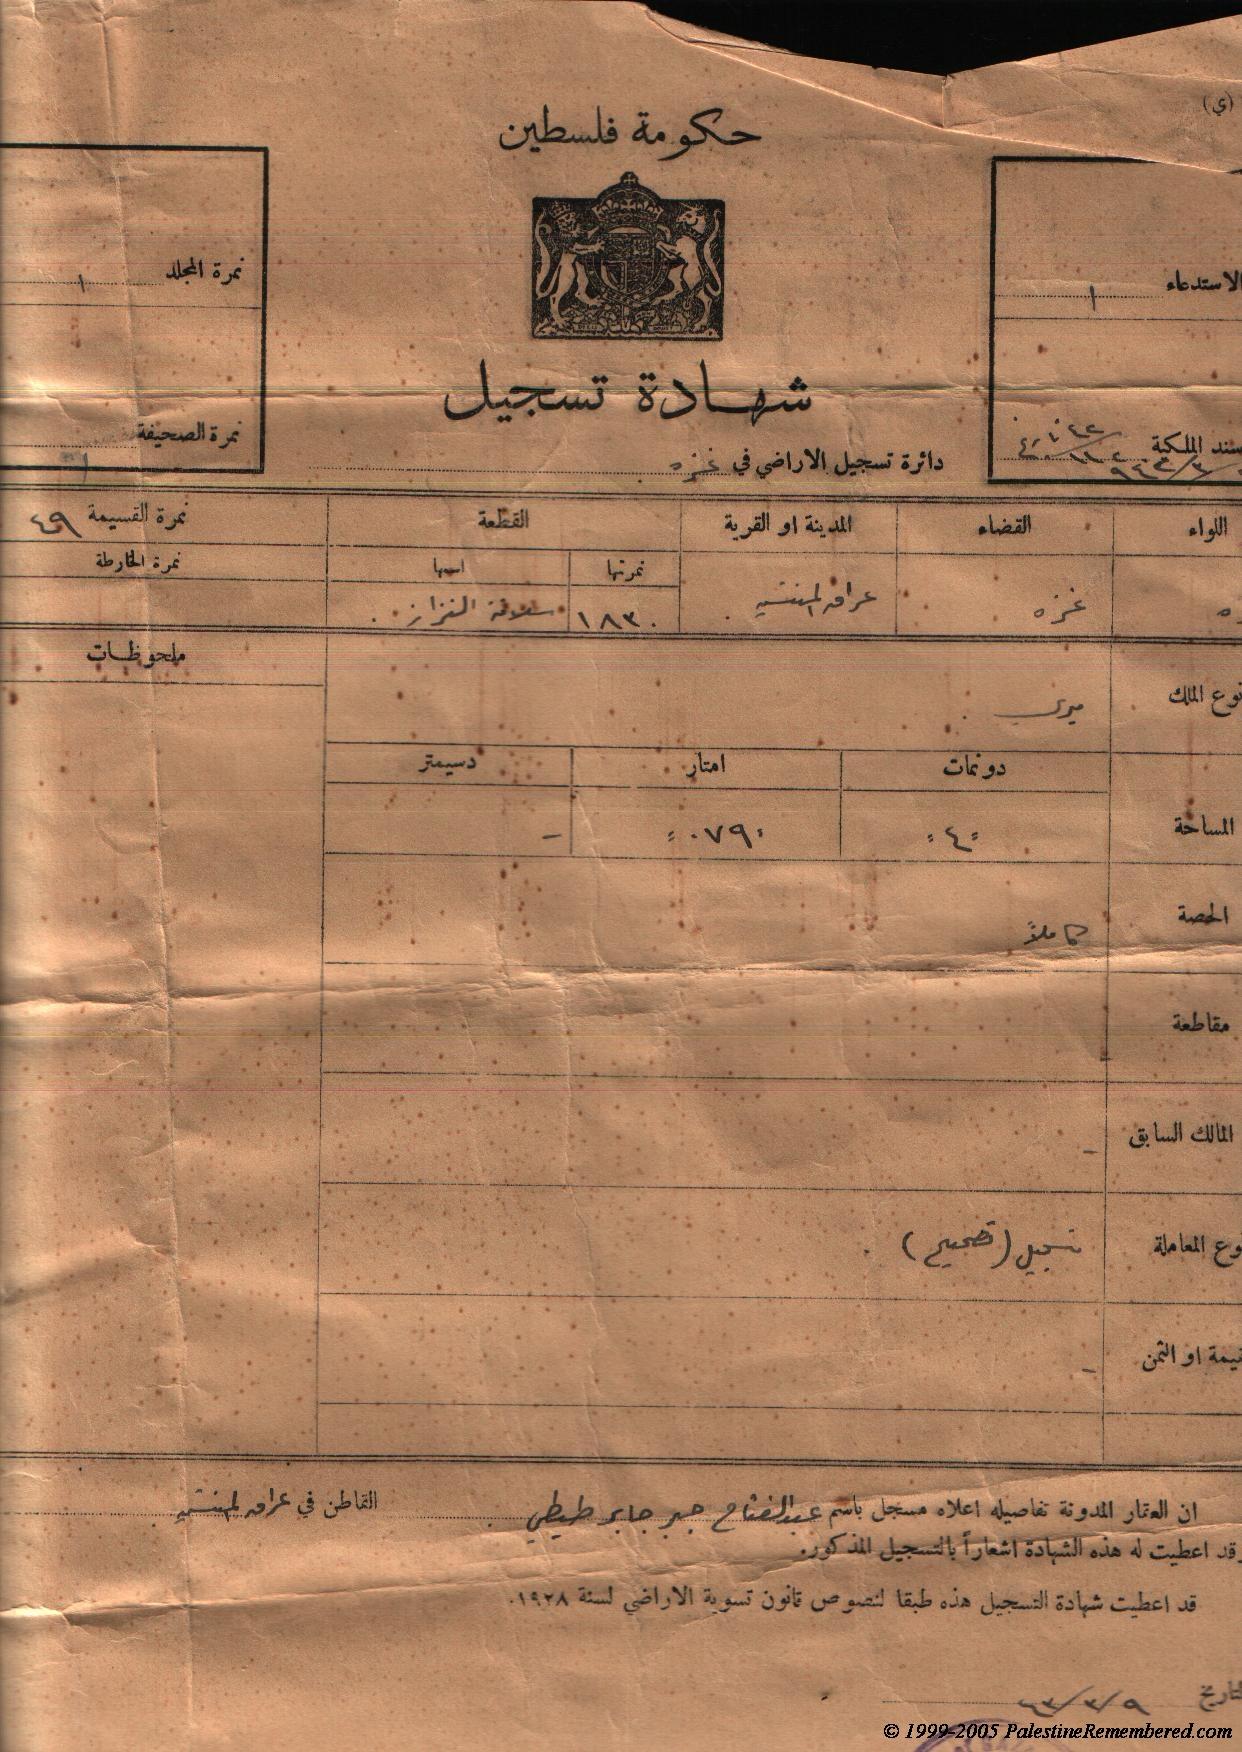 (ي)
حكومة فلسطين
الاستدعاء ١
نمرة المجلد ١
شهادة تسجيل
سند الملكية
نمرة الصحيفة
دائرة تسجيل الاراضي في غزه
اللواء القضاء المدينة او القرية القطعة نمرة القسيمة ٤٩
نمرتها اسمها نمرة الخارطة
غزه عراق المنشيه ١٨٣٠
ملحوظات
نوع الملك ميري
دونمات امتار دسيمتر
المساحة ٤ ٠٧٩ -
الحصة كاملاً
مقاطعة
المالك السابق -
نوع المعاملة تسجيل (تصحيح)
او الثمن -
ان العقار المدونة تفاصيله اعلاه مسجل باسم عبدالفتاح جبر جابر طيطي القاطن في عراق المنشيه
وقد اعطيت له هذه الشهادة اشعاراً بالتسجيل المذكور.
قد اعطيت شهادة التسجيل هذه طبقا لنصوص قانون تسوية الاراضي لسنة ١٩٢٨.
التاريخ ٩/٣/٤٣
© 1999-2005 PalestineRemembered.com